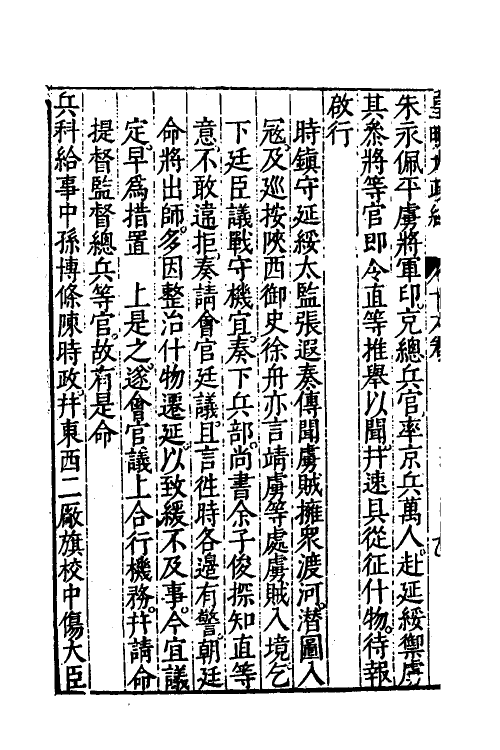 朱永佩平虜將軍印充總兵官率京兵萬人赴延綏禦虜
其叅將等官即令直等推舉以聞幷速具從征什物待報
啟行
時鎮守延綏太監張遐奏傳聞虜賊擁衆渡河潛圖入
冦及廵按陜西御史徐舟亦言靖虜等處虜賊入境乞
下廷臣議戰守機宜奏下兵部尚書余子俊探知直等
意不敢違拒奏請會官廷議且言徃時各邊有警朝廷
命將出師多因整治什物遷延以致緩不及事今宜議
定早爲措置 上是之遂會官議上合行機務幷請命
提督監督總兵等官故有是命
兵科給事中孫博條陳時政幷東西二厰旗校中傷大臣